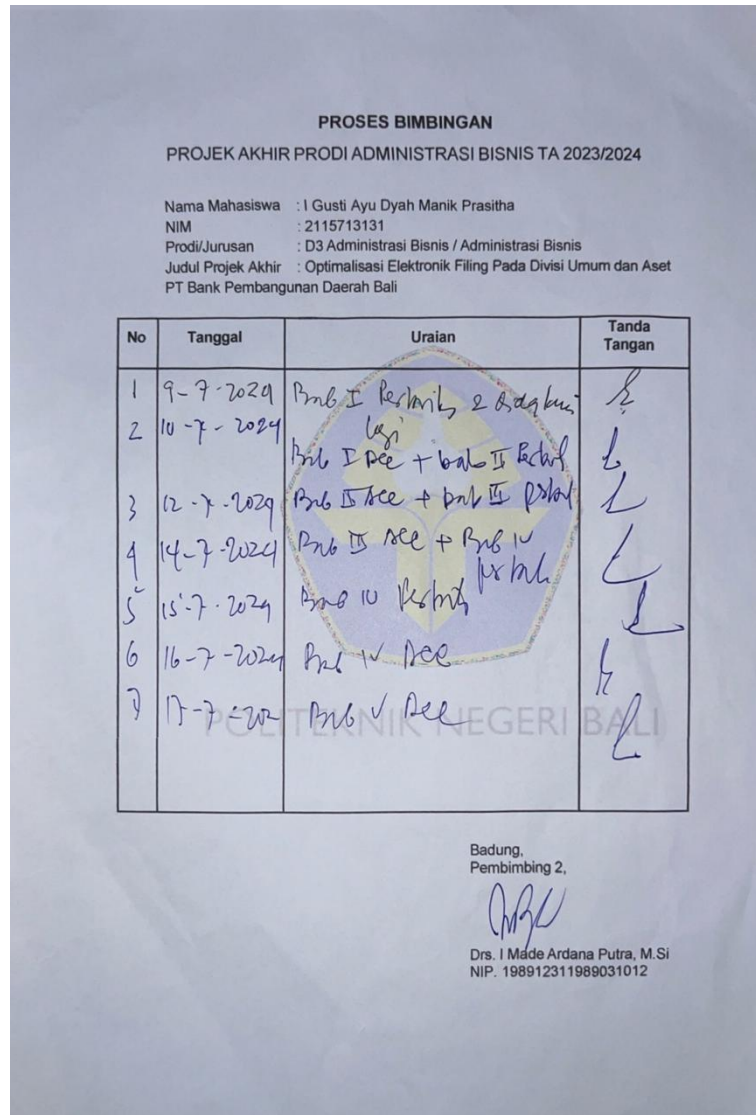 PROSES BIMBINGAN
PROJEK AKHIR PRODI ADMINISTRASI BISNIS TA 2023/2024
Nama Mahasiswa : I Gusti Ayu Dyah Manik Prasitha
NIM : 2115713131
Prodi/Jurusan : D3 Administrasi Bisnis / Administrasi Bisnis
Judul Projek Akhir : Optimalisasi Elektronik Filing Pada Divisi Umum dan Aset
PT Bank Pembangunan Daerah Bali
No Tanggal Uraian Tanda Tangan
1 9-7-2024 Bab I
lagi
2 10-7-2024 Bab I Acc + bab II
3 12-7-2024 Bab II Acc + bab III
4 14-7-2024 Bab III Acc + Bab IV
5 15-7-2024 Bab IV
6 16-7-2024 Bab IV Acc
7 17-7-202 Bab V Acc
POLITEKNIK NEGERI BALI
Badung,
Pembimbing 2,
Drs. I Made Ardana Putra, M.Si
NIP. 198912311989031012